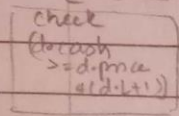 check
(b.cash
>= d.price
*(d.i+1))